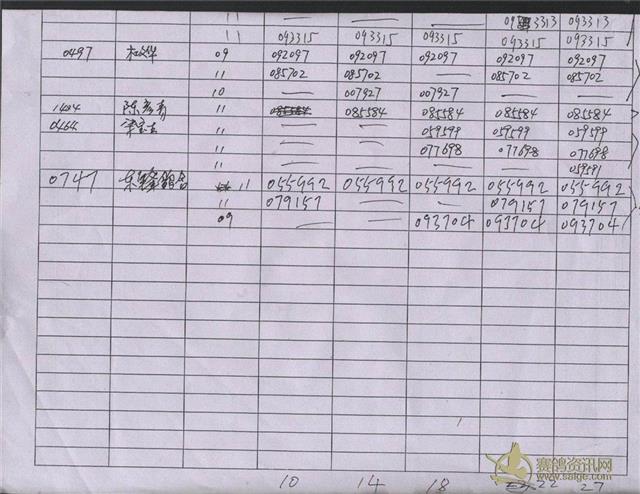 11 — — — 093313 093313
11 093315 093315 093315 093315 093315
0497 09 092097 092097 092097 092097 092097
11 085702 085702 — 085702 085702
10 — 007927 007927 — —
1404 陈彦有 11 085584 085584 085584 085584
0464 11 — — 059599 059599 059599
11 — — 077698 077698 077698
11 — — — — 059591
0747 11 055992 055992 055992 055992 055992
11 079157 — — 079157 079157
09 — — 093704 093704 093704
10 14 18 22 27
赛鸽资讯网
www.saige.com